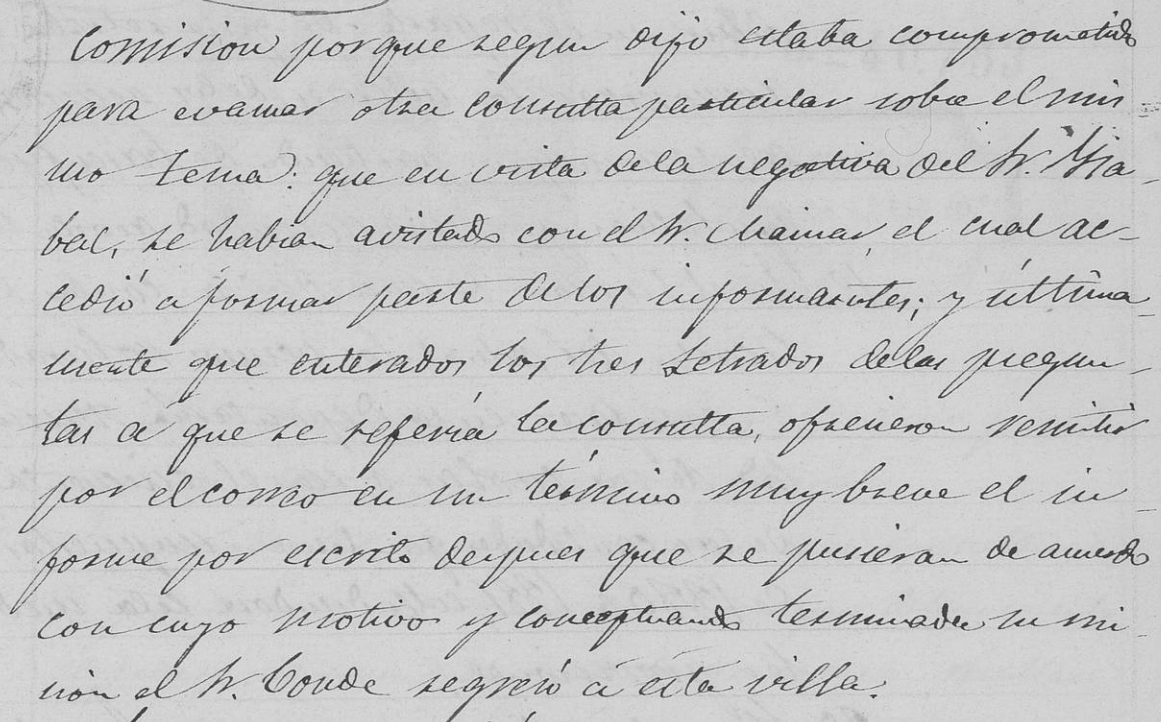 Comision porque segun dijo estaba comprometido
para evacuar otra consulta particular sobre el mis
mo tema: que en vista de la negativa del Sr. Gia-
bal, se habian avistado con el Sr. Mainar, el cual ac-
cedió a formar parte de los informantes; y última-
mente que enterados los tres Letrados de las pregun-
tas a que se referia la consulta, ofrecieron remitir
por el correo en un término muy breve el in-
forme por escrito despues que se pusieran de acuerdo
con cuyo motivo y conceptuando terminada su mi-
sion el Sr. Conde regresó á esta villa.